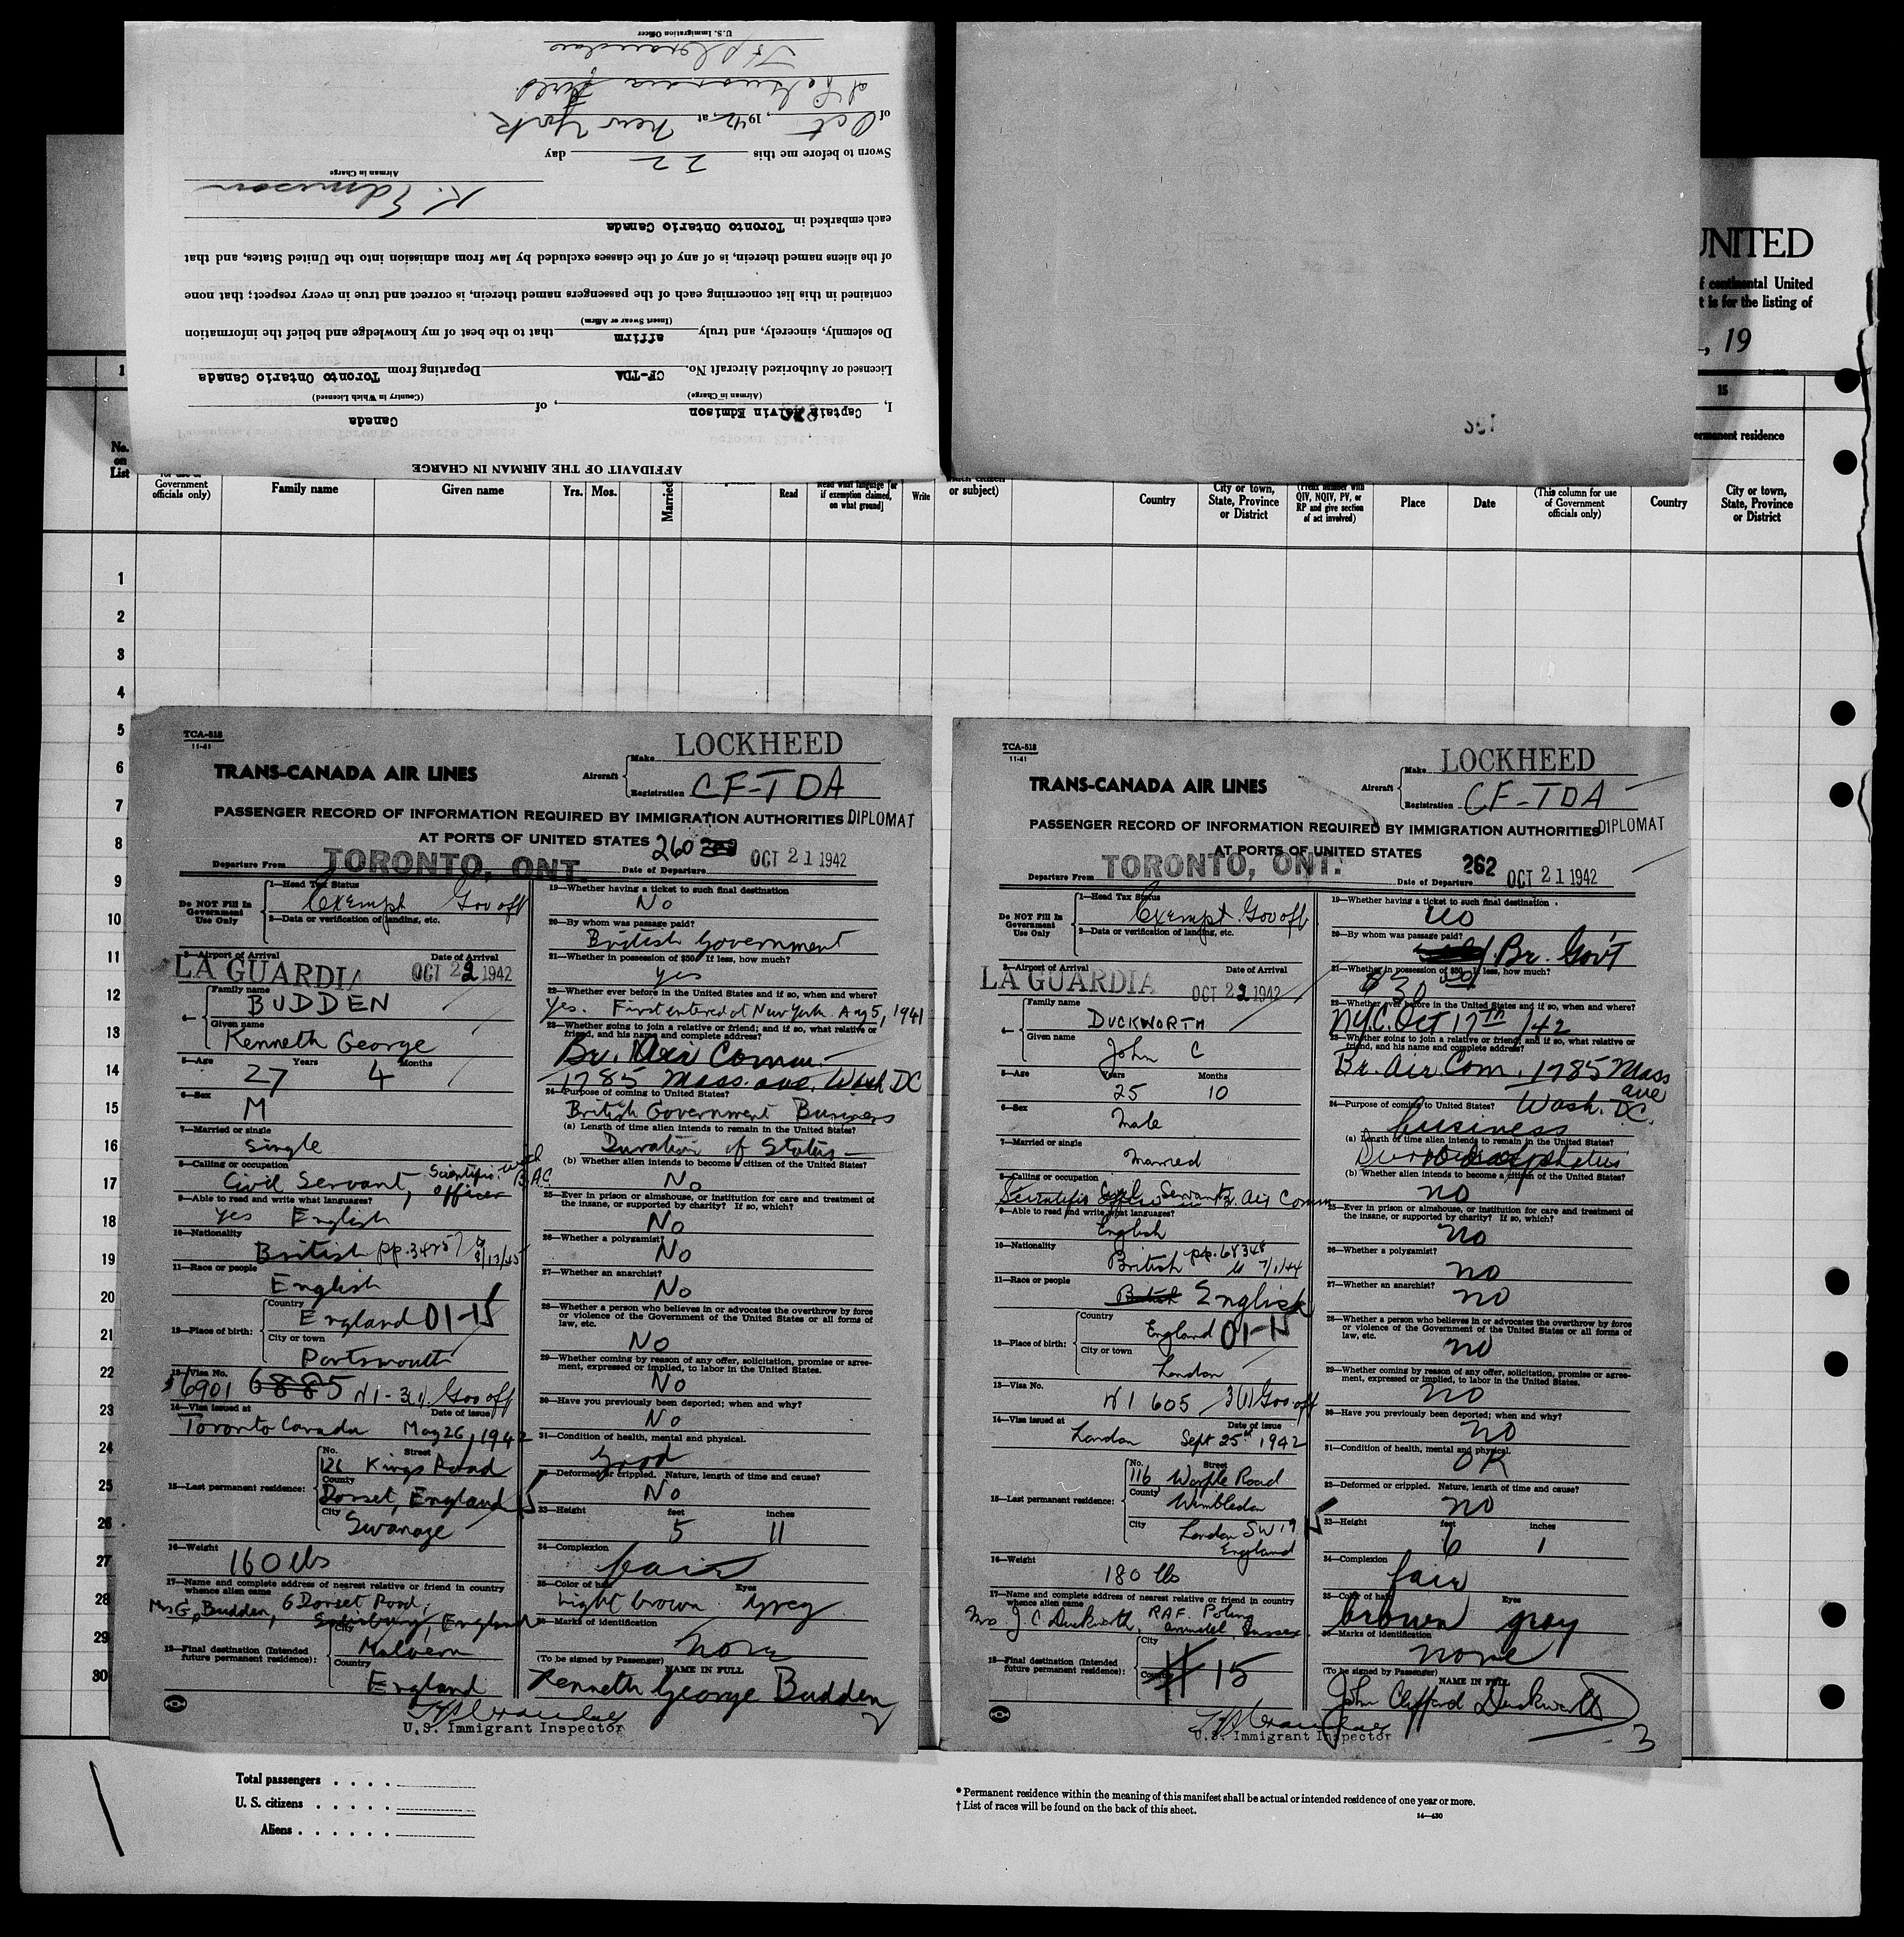 AFFIDAVIT OF THE AIRMAN IN CHARGE
I, Captain Kelvin Edmison, of Canada
(Airman in Charge) (Country in Which Licensed)
Licensed or Authorized Aircraft No. CF-TDA Departing from Toronto Ontario Canada
Do solemnly, sincerely, and truly affirm that to the best of my knowledge and belief the information
(Insert Swear or Affirm)
contained in this list concerning each of the passengers named therein, is correct and true in every respect; that none
of the aliens named therein, is of any of the classes excluded by law from admission into the United States, and that
each embarked in Toronto Ontario Canada
K. Edmison
Airman in Charge
Sworn to before me this 22 day
of Oct, 1942, at New York
U.S. Immigration Officer
UNITED
f continental United
t is for the listing of
, 19
1
15
ermanent residence
No. on List
Government officials only)
Family name
Given name
Yrs.
Mos.
Married
Read
Read what language [or if exemption claimed, on what ground]
Write
or subject)
Country
City or town, State, Province or District
QIV, NQIV, PV, or RP and give section of act involved)
Place
Date
(This column for use of Government officials only)
Country
City or town, State, Province or District
1
2
3
4
5
6
7
8
9
10
11
12
13
14
15
16
17
18
19
20
21
22
23
24
25
26
27
28
29
30
TCA-518
11-41
TRANS-CANADA AIR LINES
Aircraft Make LOCKHEED
Registration CF-TDA
PASSENGER RECORD OF INFORMATION REQUIRED BY IMMIGRATION AUTHORITIES DIPLOMAT
AT PORTS OF UNITED STATES 260
Departure From TORONTO, ONT. Date of Departure OCT 21 1942
Do NOT Fill In Government Use Only
1—Head Tax Status
Exempt Gov off
2—Data or verification of landing, etc.
3—Airport of Arrival Date of Arrival
LA GUARDIA OCT 22 1942
4— Family name
BUDDEN
Given name
Kenneth George
5—Age Years Months
27 4
6—Sex
M
7—Married or single
Single
8—Calling or occupation
Civil Servant, Scientific officer with B.A.C.
9—Able to read and write what languages?
yes English
10—Nationality
British pp.
11—Race or people
English
12—Place of birth: Country
England 01-15
City or town
Portsmouth
13—Visa No.
6901 6885 Gov off
14—Visa issued at Date of issue
Toronto Canada May 26, 1942
15—Last permanent residence: No. Street
Kings Road
County
Dorset, England
City
Swanage
16—Weight
160 lbs
17—Name and complete address of nearest relative or friend in country whence alien came
Mrs G. Budden, 6 Dorset Road, Salisbury, England
18—Final destination (Intended future permanent residence): City
Malvern
Country
England
U.S. Immigrant Inspector
19—Whether having a ticket to such final destination
No
20—By whom was passage paid?
British Government
21—Whether in possession of $50 If less, how much?
yes
22—Whether ever before in the United States and if so, when and where?
Yes. First entered at New York Aug 5, 1941
23—Whether going to join a relative or friend; and if so, what relative or friend, and his name and complete address?
Br. Air Comm.
1785 Mass. ave. Wash DC
24—Purpose of coming to United States?
British Government Business
(a) Length of time alien intends to remain in the United States?
Duration of Status
(b) Whether alien intends to become a citizen of the United States?
No
25—Ever in prison or almshouse, or institution for care and treatment of the insane, or supported by charity? If so, which?
No
26—Whether a polygamist?
No
27—Whether an anarchist?
No
28—Whether a person who believes in or advocates the overthrow by force or violence of the Government of the United States or all forms of law, etc.
No
29—Whether coming by reason of any offer, solicitation, promise or agreement, expressed or implied, to labor in the United States.
No
30—Have you previously been deported; when and why?
No
31—Condition of health, mental and physical.
Good
32—Deformed or crippled. Nature, length of time and cause?
No
33—Height feet inches
5 11
34—Complexion
fair
35—Color of hair Eyes
Light brown Grey
36—Marks of identification
none
(To be signed by Passenger) NAME IN FULL
Kenneth George Budden
2
TCA-518
11-41
TRANS-CANADA AIR LINES
Aircraft Make LOCKHEED
Registration CF-TDA
PASSENGER RECORD OF INFORMATION REQUIRED BY IMMIGRATION AUTHORITIES DIPLOMAT
AT PORTS OF UNITED STATES
Departure From TORONTO, ONT. Date of Departure 262 OCT 21 1942
Do NOT Fill In Government Use Only
1—Head Tax Status
Exempt Gov off
2—Data or verification of landing, etc.
3—Airport of Arrival Date of Arrival
LA GUARDIA OCT 22 1942
4— Family name
DUCKWORTH
Given name
John C
5—Age Years Months
25 10
6—Sex
Male
7—Married or single
Married
8—Calling or occupation
Scientific officer Civil Servant Br. Air Comm
9—Able to read and write what languages?
English
10—Nationality
British pp. 68348 7/1/44
11—Race or people
British English
12—Place of birth: Country
England 01-15
City or town
London
13—Visa No.
605 3(1) Gov off
14—Visa issued at Date of issue
London Sept 25th 1942
15—Last permanent residence: No. Street
116 Worple Road
County
Wimbledon
City
London SW 19
England
16—Weight
180 lbs
17—Name and complete address of nearest relative or friend in country whence alien came
Mrs J. C. Duckworth, RAF Poling Arundel, Sussex.
18—Final destination (Intended future permanent residence): City
Country
15
U.S. Immigrant Inspector
19—Whether having a ticket to such final destination
no
20—By whom was passage paid?
Br. Gov't
21—Whether in possession of $50 If less, how much?
$30
22—Whether ever before in the United States and if so, when and where?
NYC. Oct 17th /42
23—Whether going to join a relative or friend; and if so, what relative or friend, and his name and complete address?
Br. Air Com. 1785 Mass ave
Wash. DC.
24—Purpose of coming to United States?
business
(a) Length of time alien intends to remain in the United States?
(b) Whether alien intends to become a citizen of the United States?
no
25—Ever in prison or almshouse, or institution for care and treatment of the insane, or supported by charity? If so, which?
no
26—Whether a polygamist?
no
27—Whether an anarchist?
no
28—Whether a person who believes in or advocates the overthrow by force or violence of the Government of the United States or all forms of law, etc.
no
29—Whether coming by reason of any offer, solicitation, promise or agreement, expressed or implied, to labor in the United States.
no
30—Have you previously been deported; when and why?
no
31—Condition of health, mental and physical.
OK
32—Deformed or crippled. Nature, length of time and cause?
no
33—Height feet inches
6 1
34—Complexion
fair
35—Color of hair Eyes
brown gray
36—Marks of identification
none
(To be signed by Passenger) NAME IN FULL
John Clifford Duckworth
3
Total passengers . . . .
U. S. citizens . . . . .
Aliens . . . . . .
* Permanent residence within the meaning of this manifest shall be actual or intended residence of one year or more.
† List of races will be found on the back of this sheet.
14—430